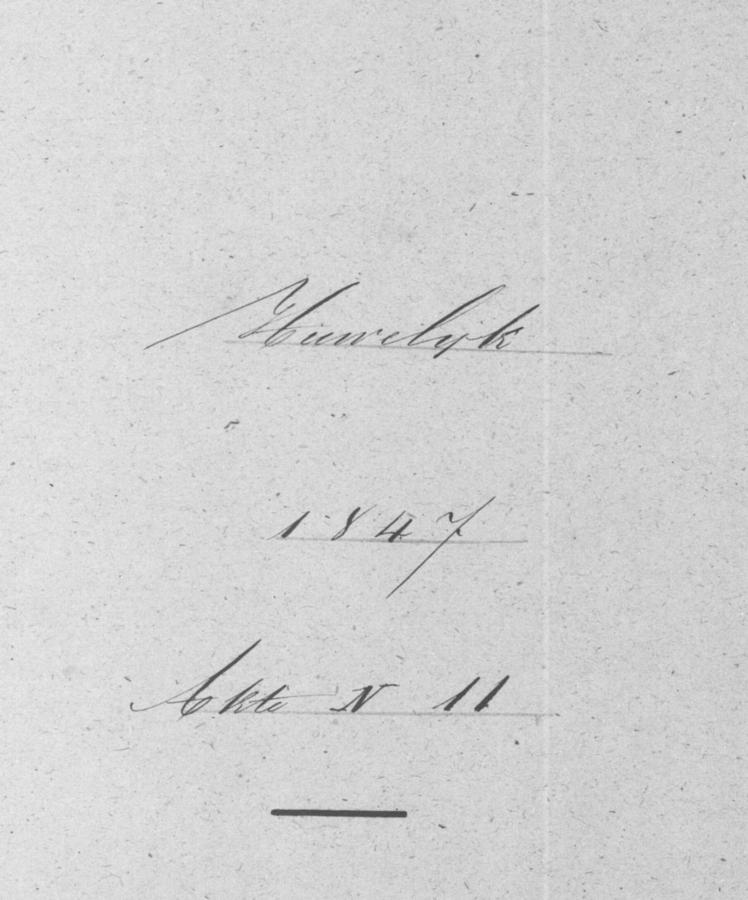 Huwelijk
1847
Akte N 11